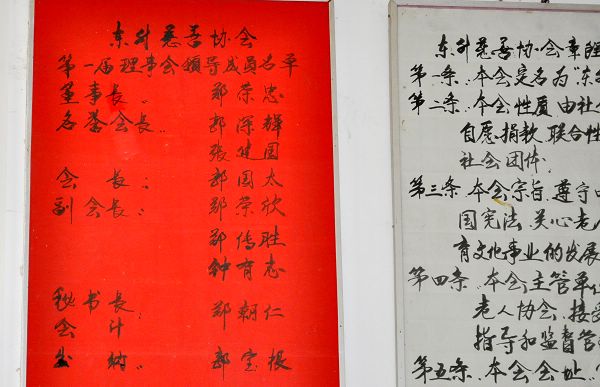 东升慈善协会
第一届理事会领导成员名单
董事长： 郑荣忠
名誉会长： 郭深辉
张建国
会 长： 郭国太
副会长： 郑荣欣
郑传胜
钟育志
秘书长： 郑朝仁
会计
出纳： 郭宝根
东升慈善协会章程
第一条、本会定名为“东
第二条、本会性质由社
自愿捐款、联合性
社会团体。
第三条、本会宗旨、遵守中
国宪法、关心老人
育文化事业的发展
第四条、本会主管单位
老人协会、接受
指导和监督管
第五条、本会会址、